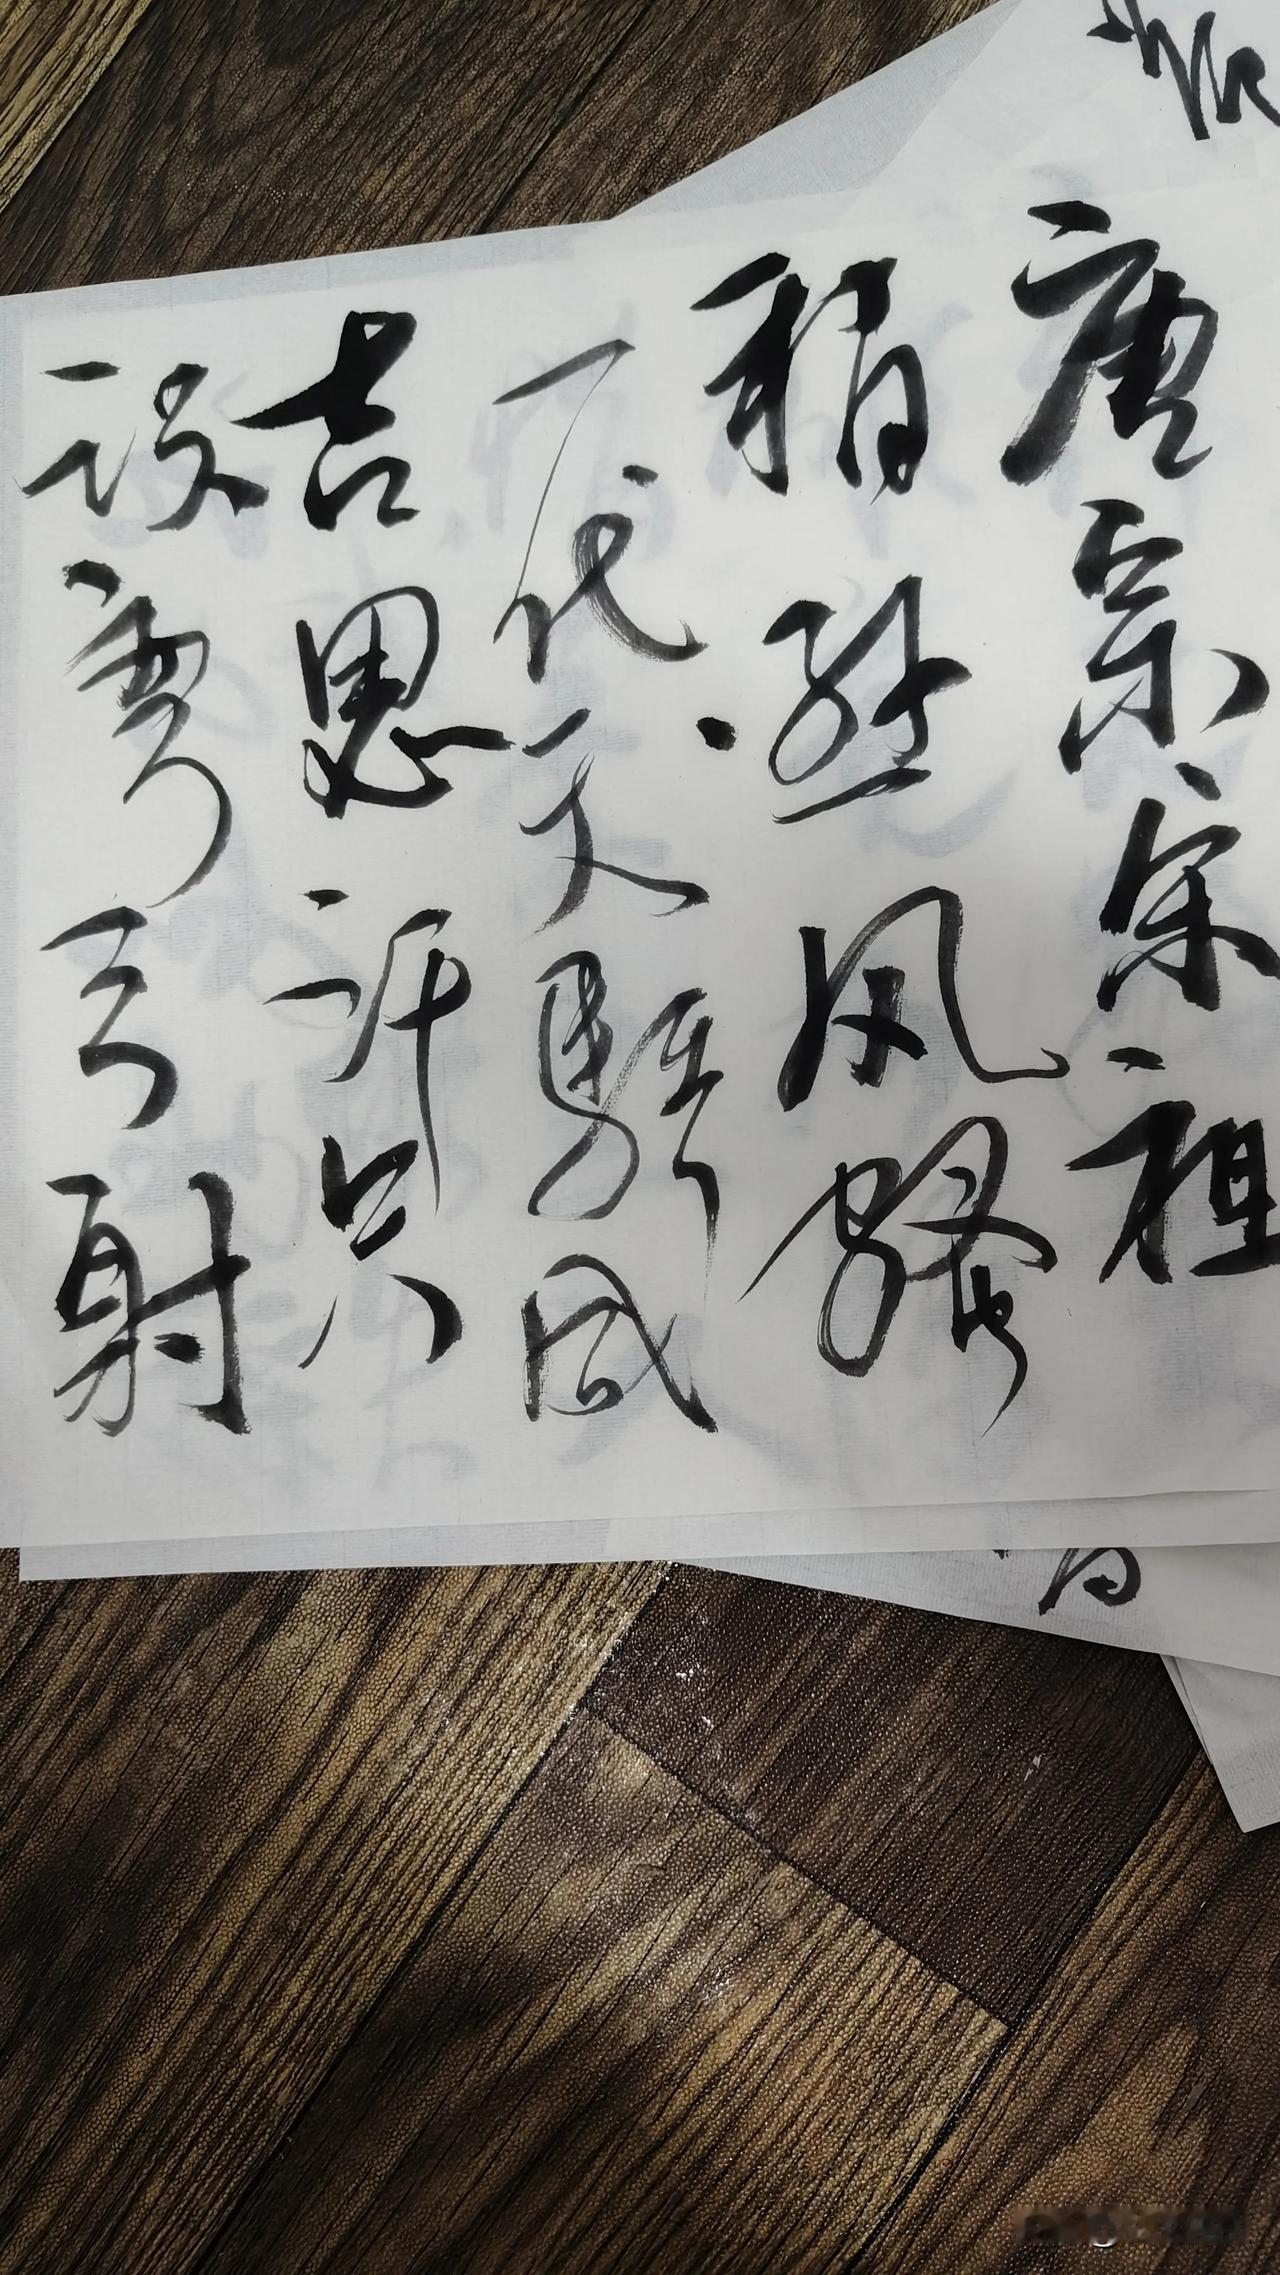 唐宗宋祖
稍逊风骚
一代天骄成
吉思汗只
识弯弓射